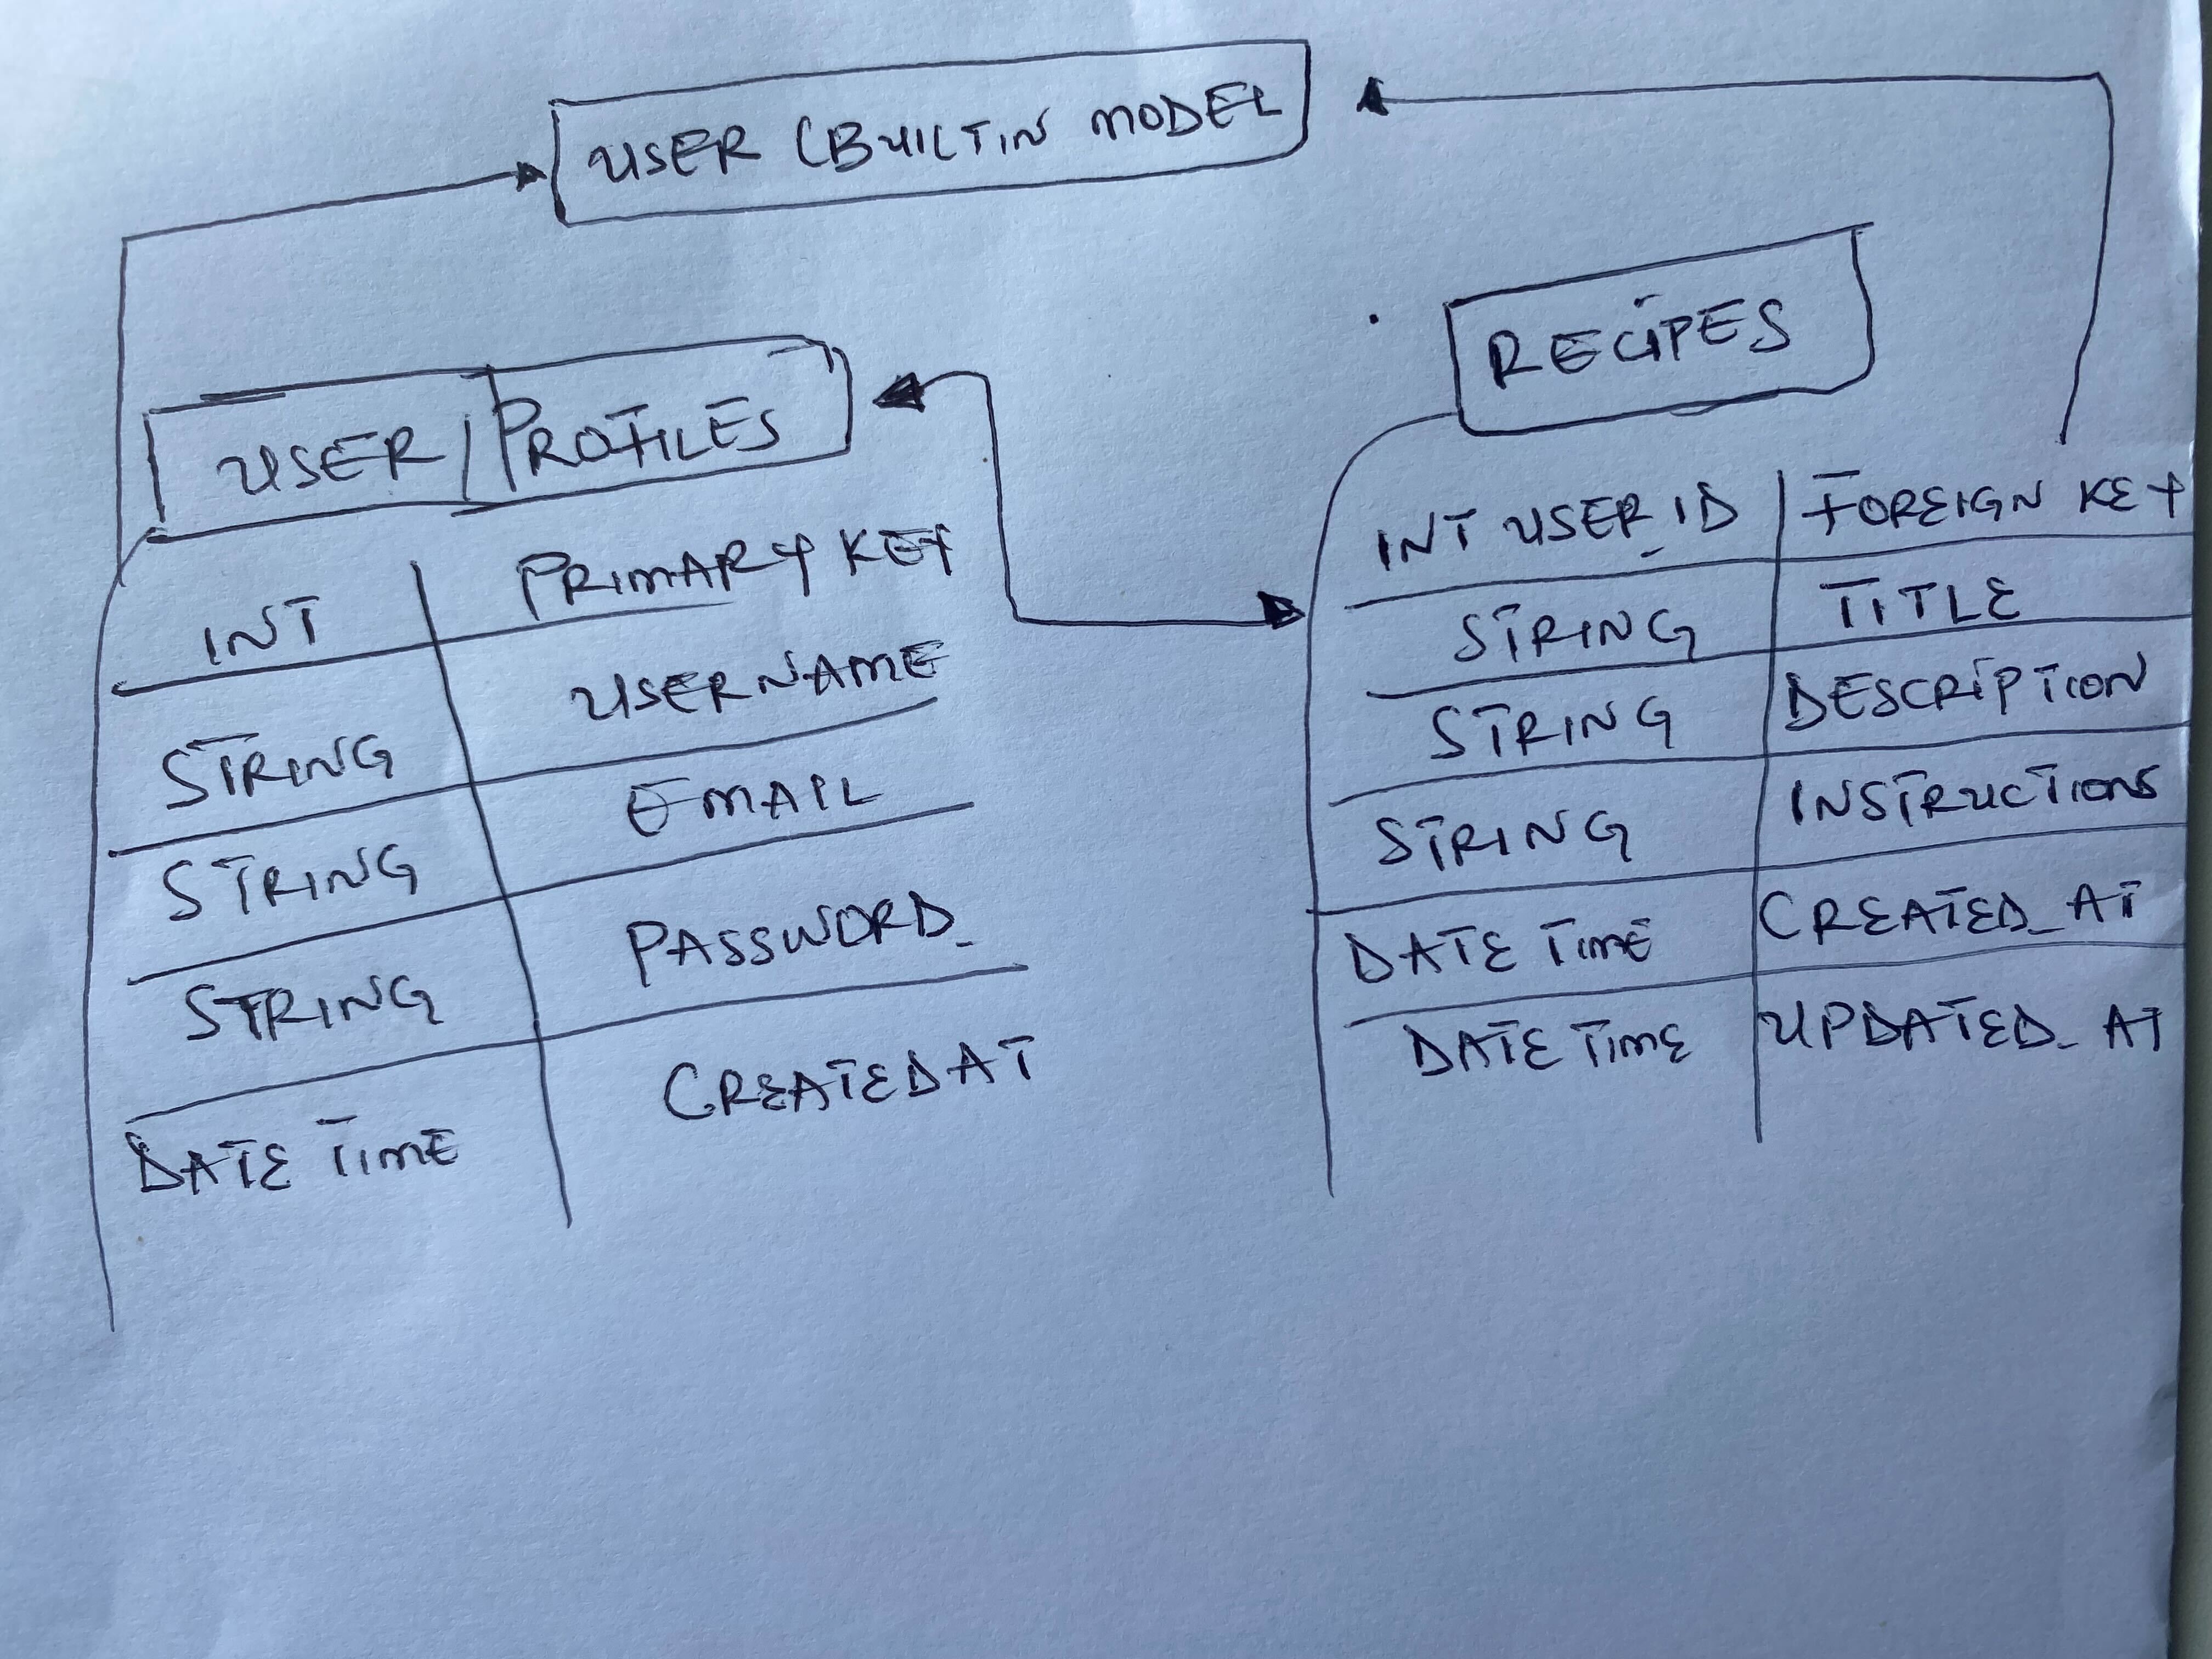 USER (BUILTIN MODEL
USER/PROFILES
INT PRIMARY KEY
STRING USERNAME
STRING EMAIL
STRING PASSWORD
DATE TIME CREATED AT
RECIPES
INT USER_ID FOREIGN KEY
STRING TITLE
STRING DESCRIPTION
STRING INSTRUCTIONS
DATE TIME CREATED_AT
DATE TIME UPDATED_AT